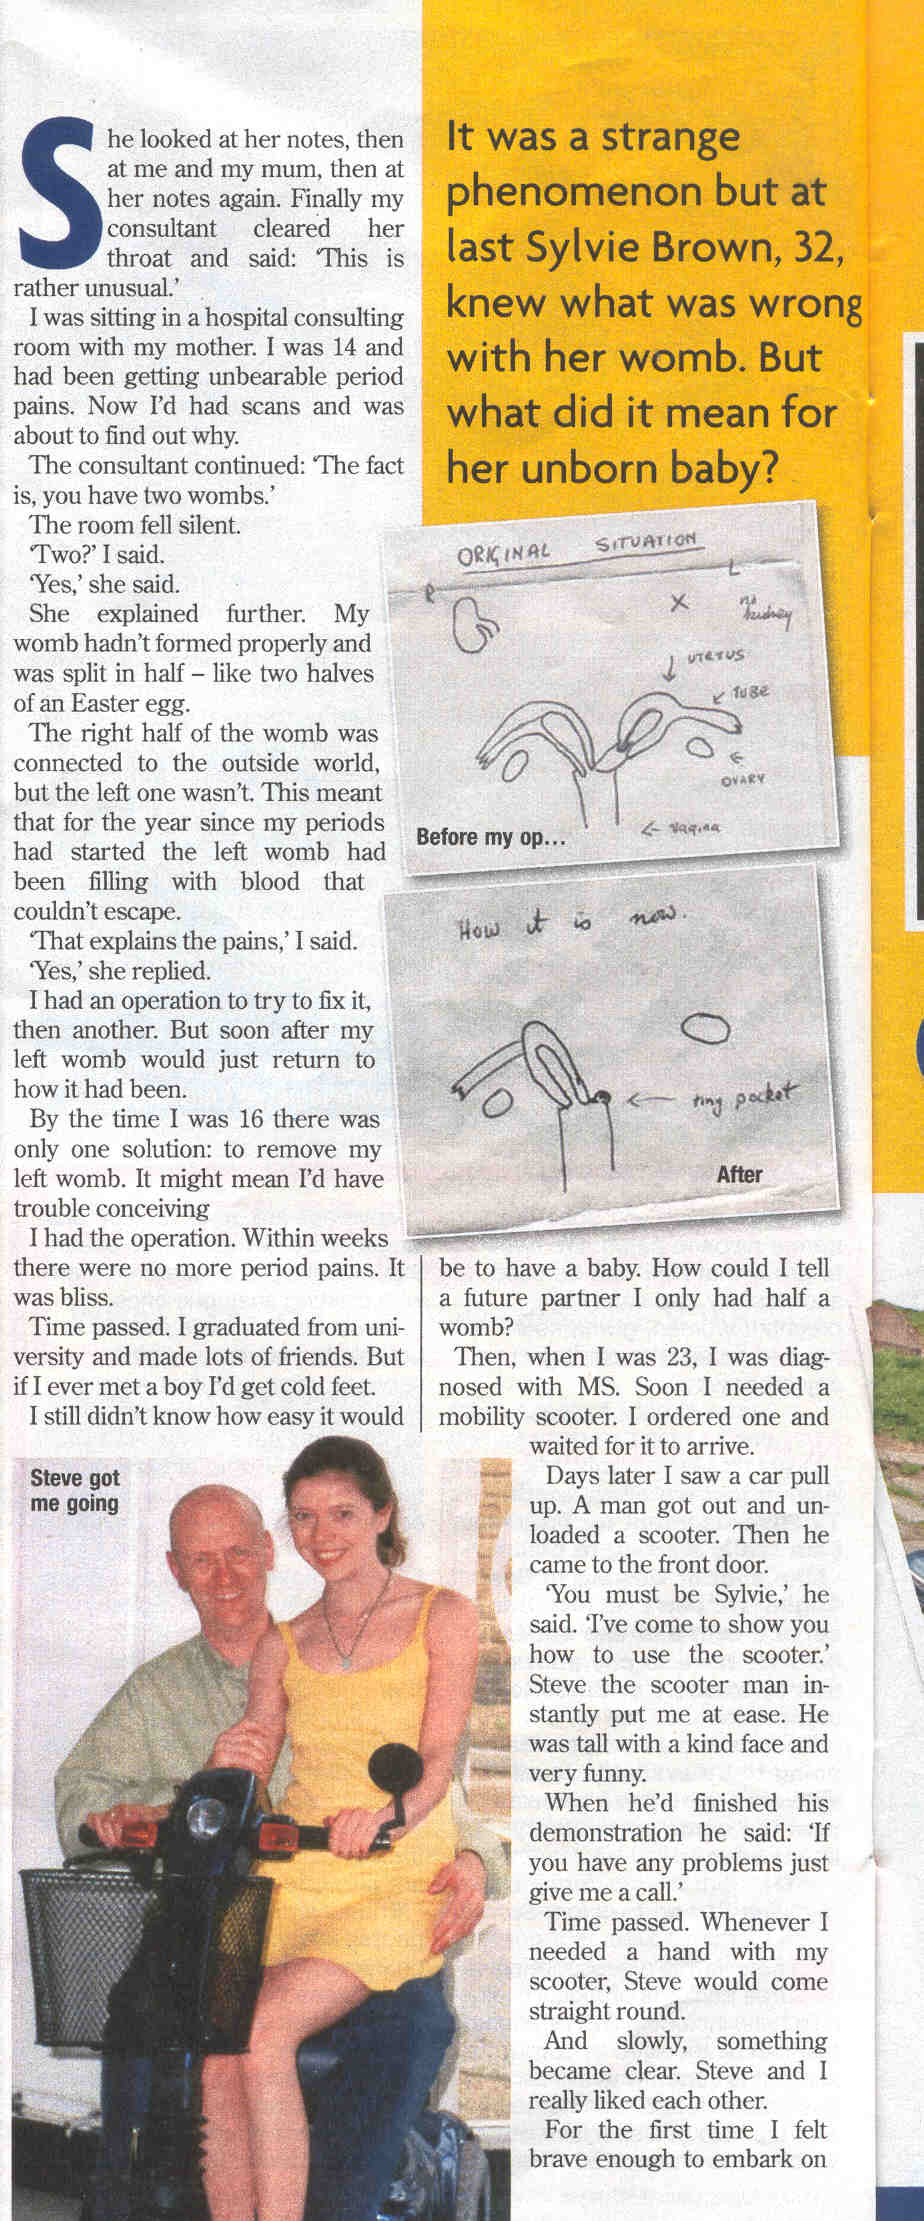 It was a strange
phenomenon but at
last Sylvie Brown, 32,
knew what was wrong
with her womb. But
what did it mean for
her unborn baby?
She looked at her notes, then
at me and my mum, then at
her notes again. Finally my
consultant cleared her
throat and said: ‘This is
rather unusual.’
I was sitting in a hospital consulting
room with my mother. I was 14 and
had been getting unbearable period
pains. Now I’d had scans and was
about to find out why.
The consultant continued: ‘The fact
is, you have two wombs.’
The room fell silent.
‘Two?’ I said.
‘Yes,’ she said.
She explained further. My
womb hadn’t formed properly and
was split in half – like two halves
of an Easter egg.
The right half of the womb was
connected to the outside world,
but the left one wasn’t. This meant
that for the year since my periods
had started the left womb had
been filling with blood that
couldn’t escape.
‘That explains the pains,’ I said.
‘Yes,’ she replied.
I had an operation to try to fix it,
then another. But soon after my
left womb would just return to
how it had been.
By the time I was 16 there was
only one solution: to remove my
left womb. It might mean I’d have
trouble conceiving
I had the operation. Within weeks
there were no more period pains. It
was bliss.
Time passed. I graduated from uni-
versity and made lots of friends. But
if I ever met a boy I’d get cold feet.
I still didn’t know how easy it would
ORIGINAL SITUATION
R
L
X
no
kidney
UTERUS
TUBE
OVARY
vagina
Before my op...
How it is now.
tiny pocket
After
be to have a baby. How could I tell
a future partner I only had half a
womb?
Then, when I was 23, I was diag-
nosed with MS. Soon I needed a
mobility scooter. I ordered one and
waited for it to arrive.
Days later I saw a car pull
up. A man got out and un-
loaded a scooter. Then he
came to the front door.
‘You must be Sylvie,’ he
said. ‘I’ve come to show you
how to use the scooter.’
Steve the scooter man in-
stantly put me at ease. He
was tall with a kind face and
very funny.
When he’d finished his
demonstration he said: ‘If
you have any problems just
give me a call.’
Time passed. Whenever I
needed a hand with my
scooter, Steve would come
straight round.
And slowly, something
became clear. Steve and I
really liked each other.
For the first time I felt
brave enough to embark on
Steve got
me going